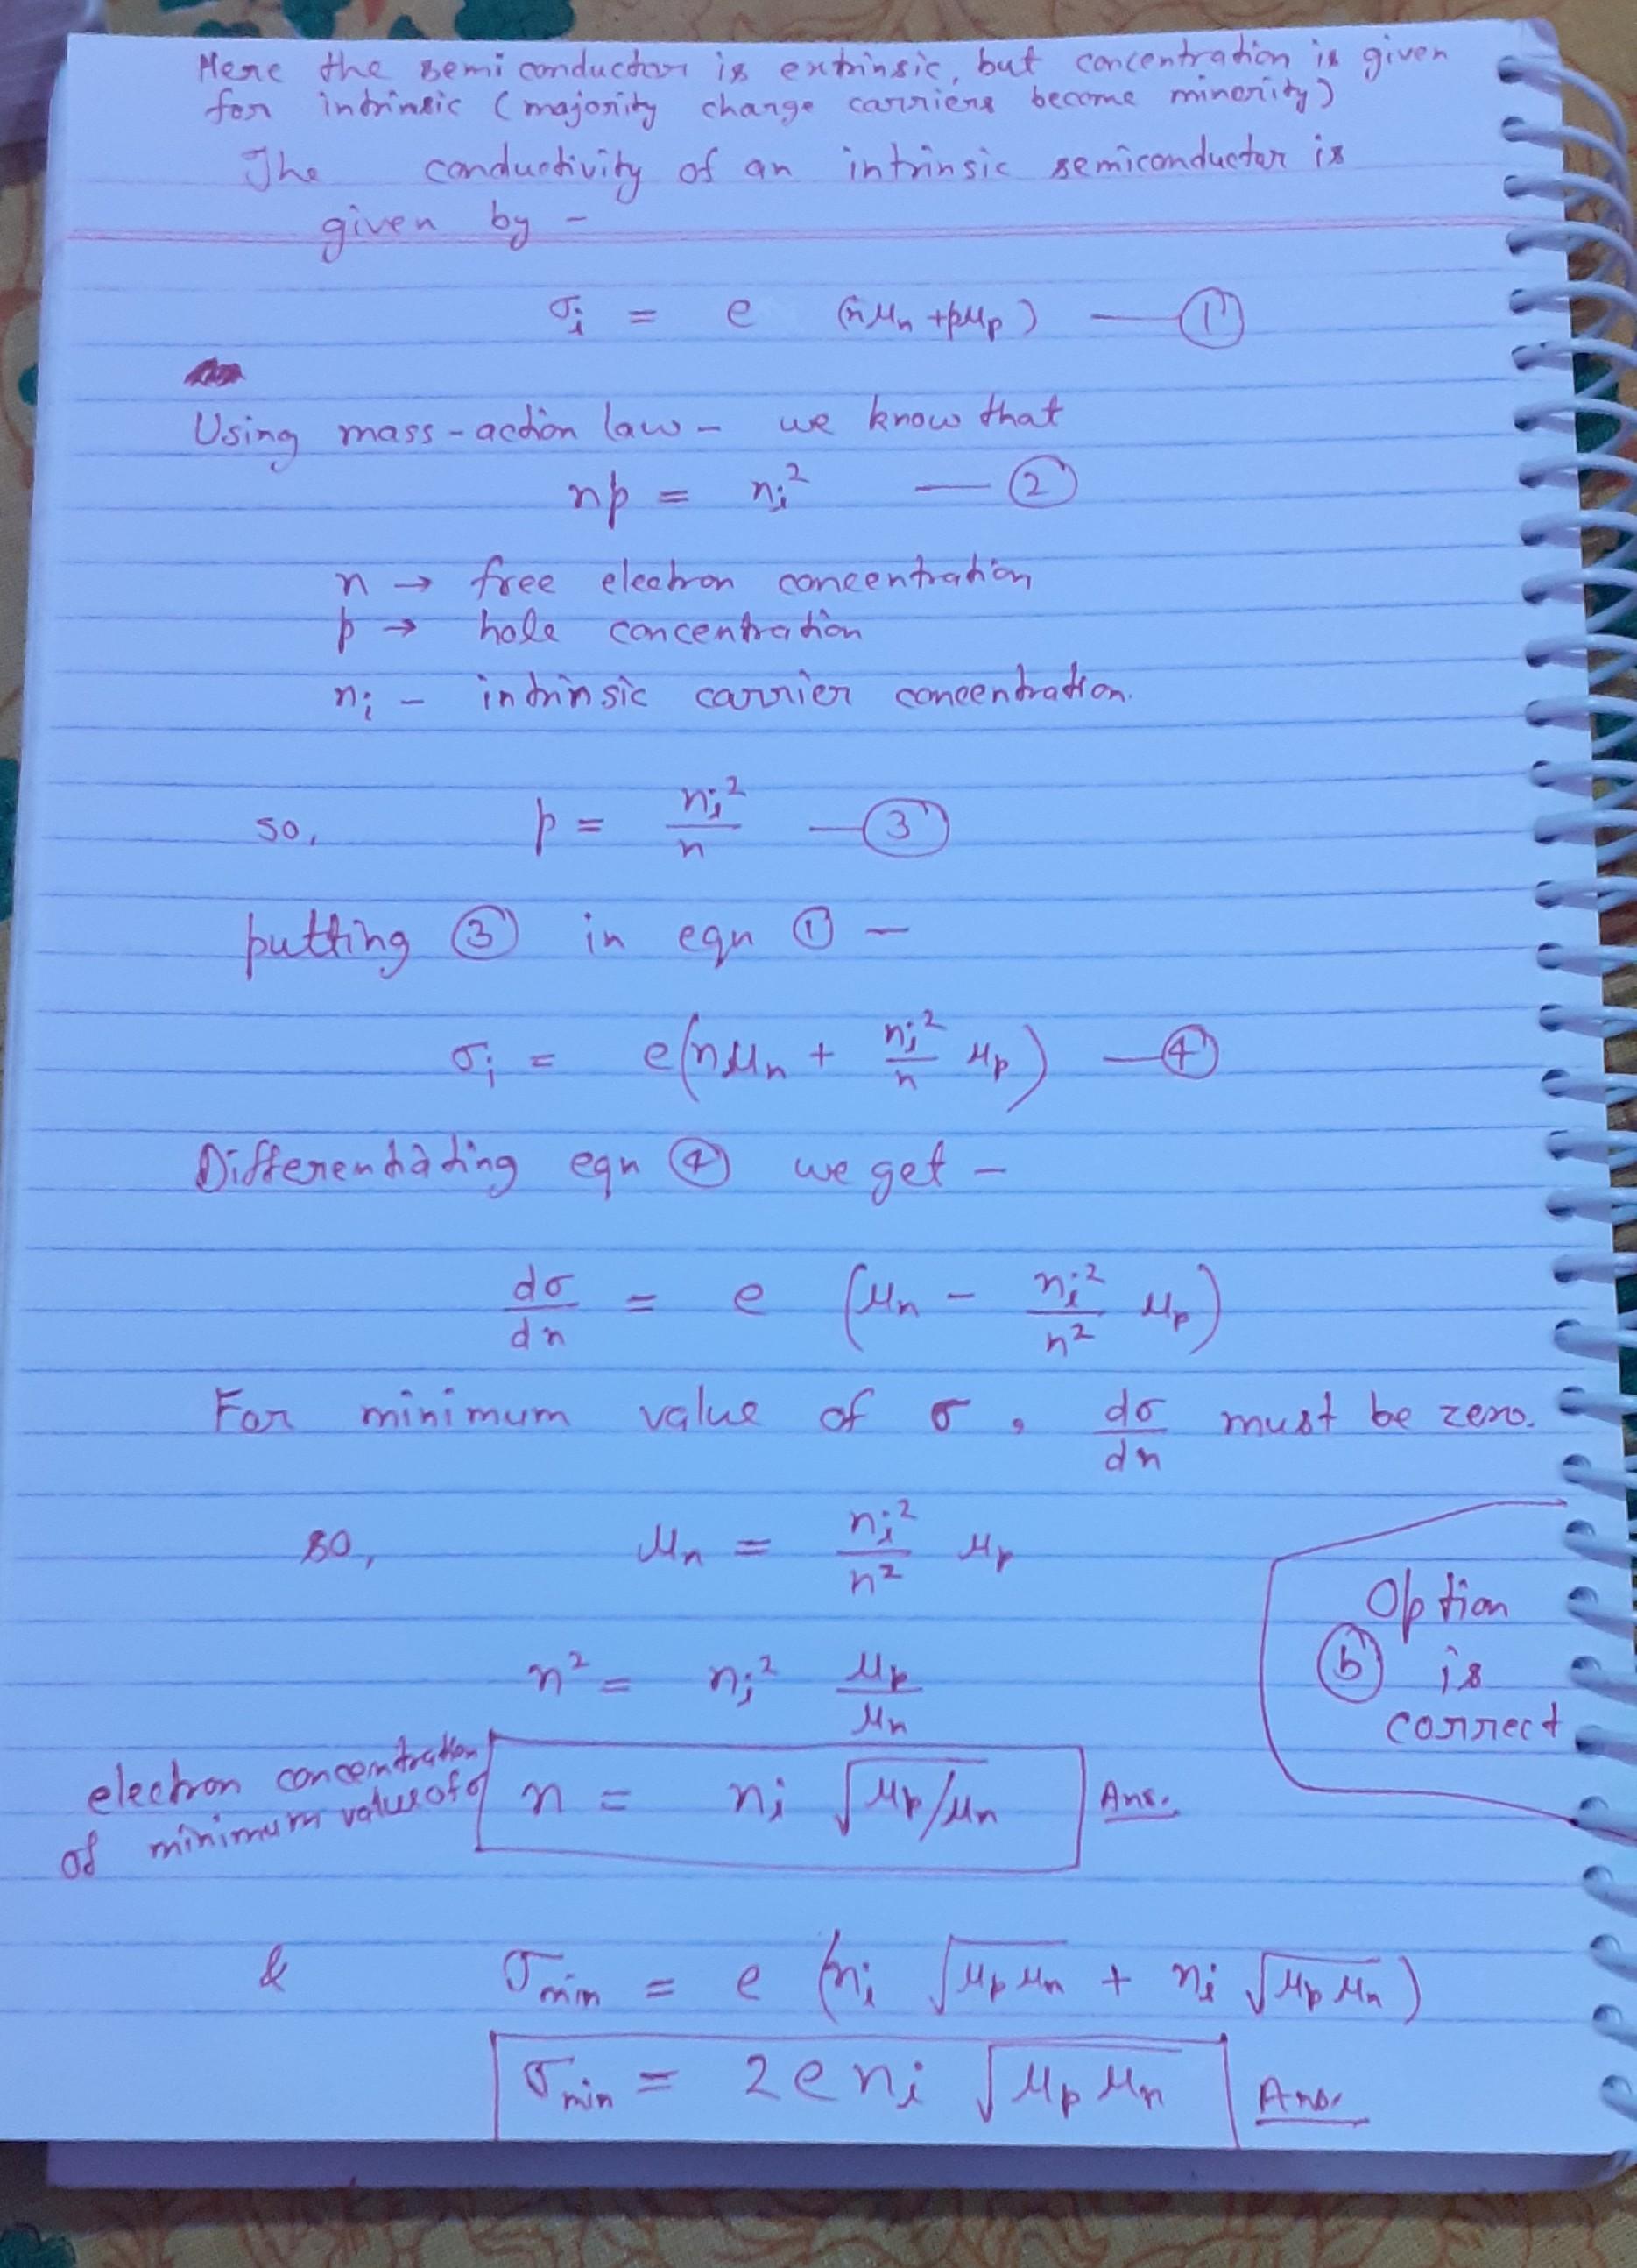 Here the semiconductor is extrinsic, but concentration is given
for intrinsic (majority charge carriers become minority)
The conductivity of an intrinsic semiconductor is
given by -
σi = e (nμn + pμp) — ①
Using mass-action law - we know that
np = ni² — ②
n → free electron concentration
p → hole concentration
ni - intrinsic carrier concentration.
so, p = ni²/n — ③
putting ③ in eqn ① —
σi = e(nμn + ni²/n μp) — ④
Differentiating eqn ④ we get —
dσ/dn = e (μn - ni²/n² μp)
For minimum value of σ, dσ/dn must be zero.
so, μn = ni²/n² μp
n² = ni² μp/μn
electron concentration
of minimum value of σ
n = ni √μp/μn Ans.
Option
ⓑ is
correct
& σmin = e (ni √μp μn + ni √μp μn)
σmin = 2eni √μp μn Ans.